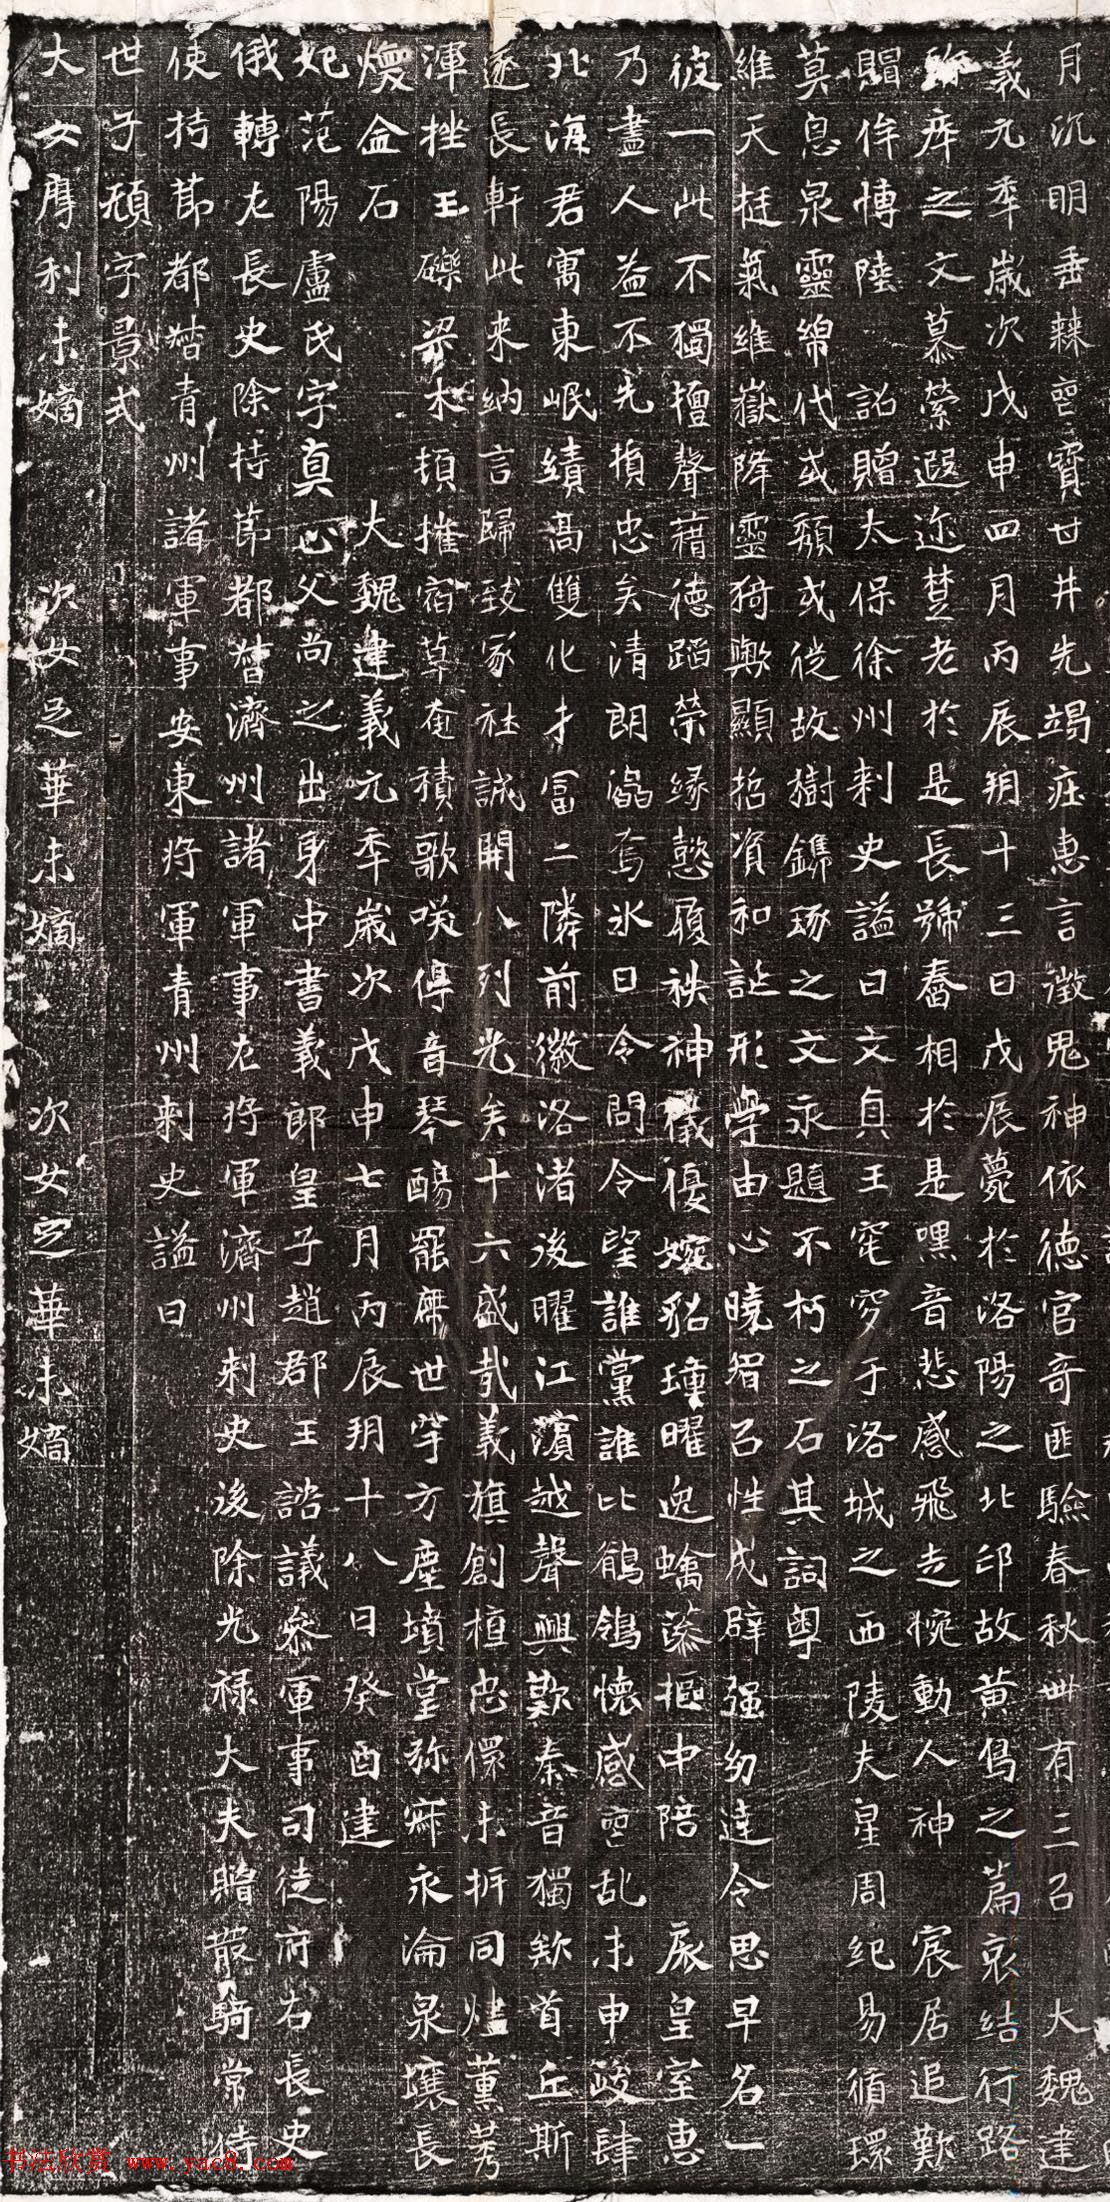 月沉明垂棘空寶甘井先竭疰惠言澂鬼神依德官奇匪驗春秋卌有三召　大魏建
義元年歲次戊申四月丙辰朔十三日戊辰薨於洛陽之北邙故黄鳥之篇哀結行路
殄瘁之文慕縈遐迩楚老於是長號舂相於是嘿音悲感飛走惋動人神　宸居追歎
賵侔愽陸　詔贈太保徐州刺史諡曰文貞王窀穸于洛城之西陵夫星周紀易循環
莫息泉靈綿代或頹或徙故樹鐫琢之文永題不朽之石其詞粵
維天挺氣維嶽降靈猗歟顯哲資和誕形學由心曉智召性成辟强幼達令思早名
彼一此不獨擅聲藉德蹈榮緣懿履秩神儀優婉　曜　中陪　扆皇室惠
乃盡人益不先損忠矣清朗潝焉氷日令問令望誰黨誰比鶺鴒懷感空乱未申政肆
北海君寓東岷績高雙化才冨二隣前徽洛渚後曜江濱越聲興歎秦音獨欸首丘斯
逐長軒此来納言歸致冢社誠開八列光矣十六盛哉義旗創植忠保未析同爐薰芳
渾挫玉礫梁木頓摧宿草奄積歌咲停音琴醻罷席世罕方塵墳堂弥寐永淪泉壤長
燰金石　大魏建義元年歲次戊申七月丙辰朔十八日癸酉建
妃范陽盧氏字真心父尚之出身中書義郎皇子趙郡王諮議叅軍事司徒府右長史
俄轉左長史除持節都督濟州諸軍事左將軍濟州刺史後除光禄大夫贈散騎常侍
使持節都督青州諸軍事安東將軍青州刺史諡曰
世子頑字景式
大女摩利未嫡　次女足華未嫡　次女定華未嫡
书法欣赏 www.yac8.com